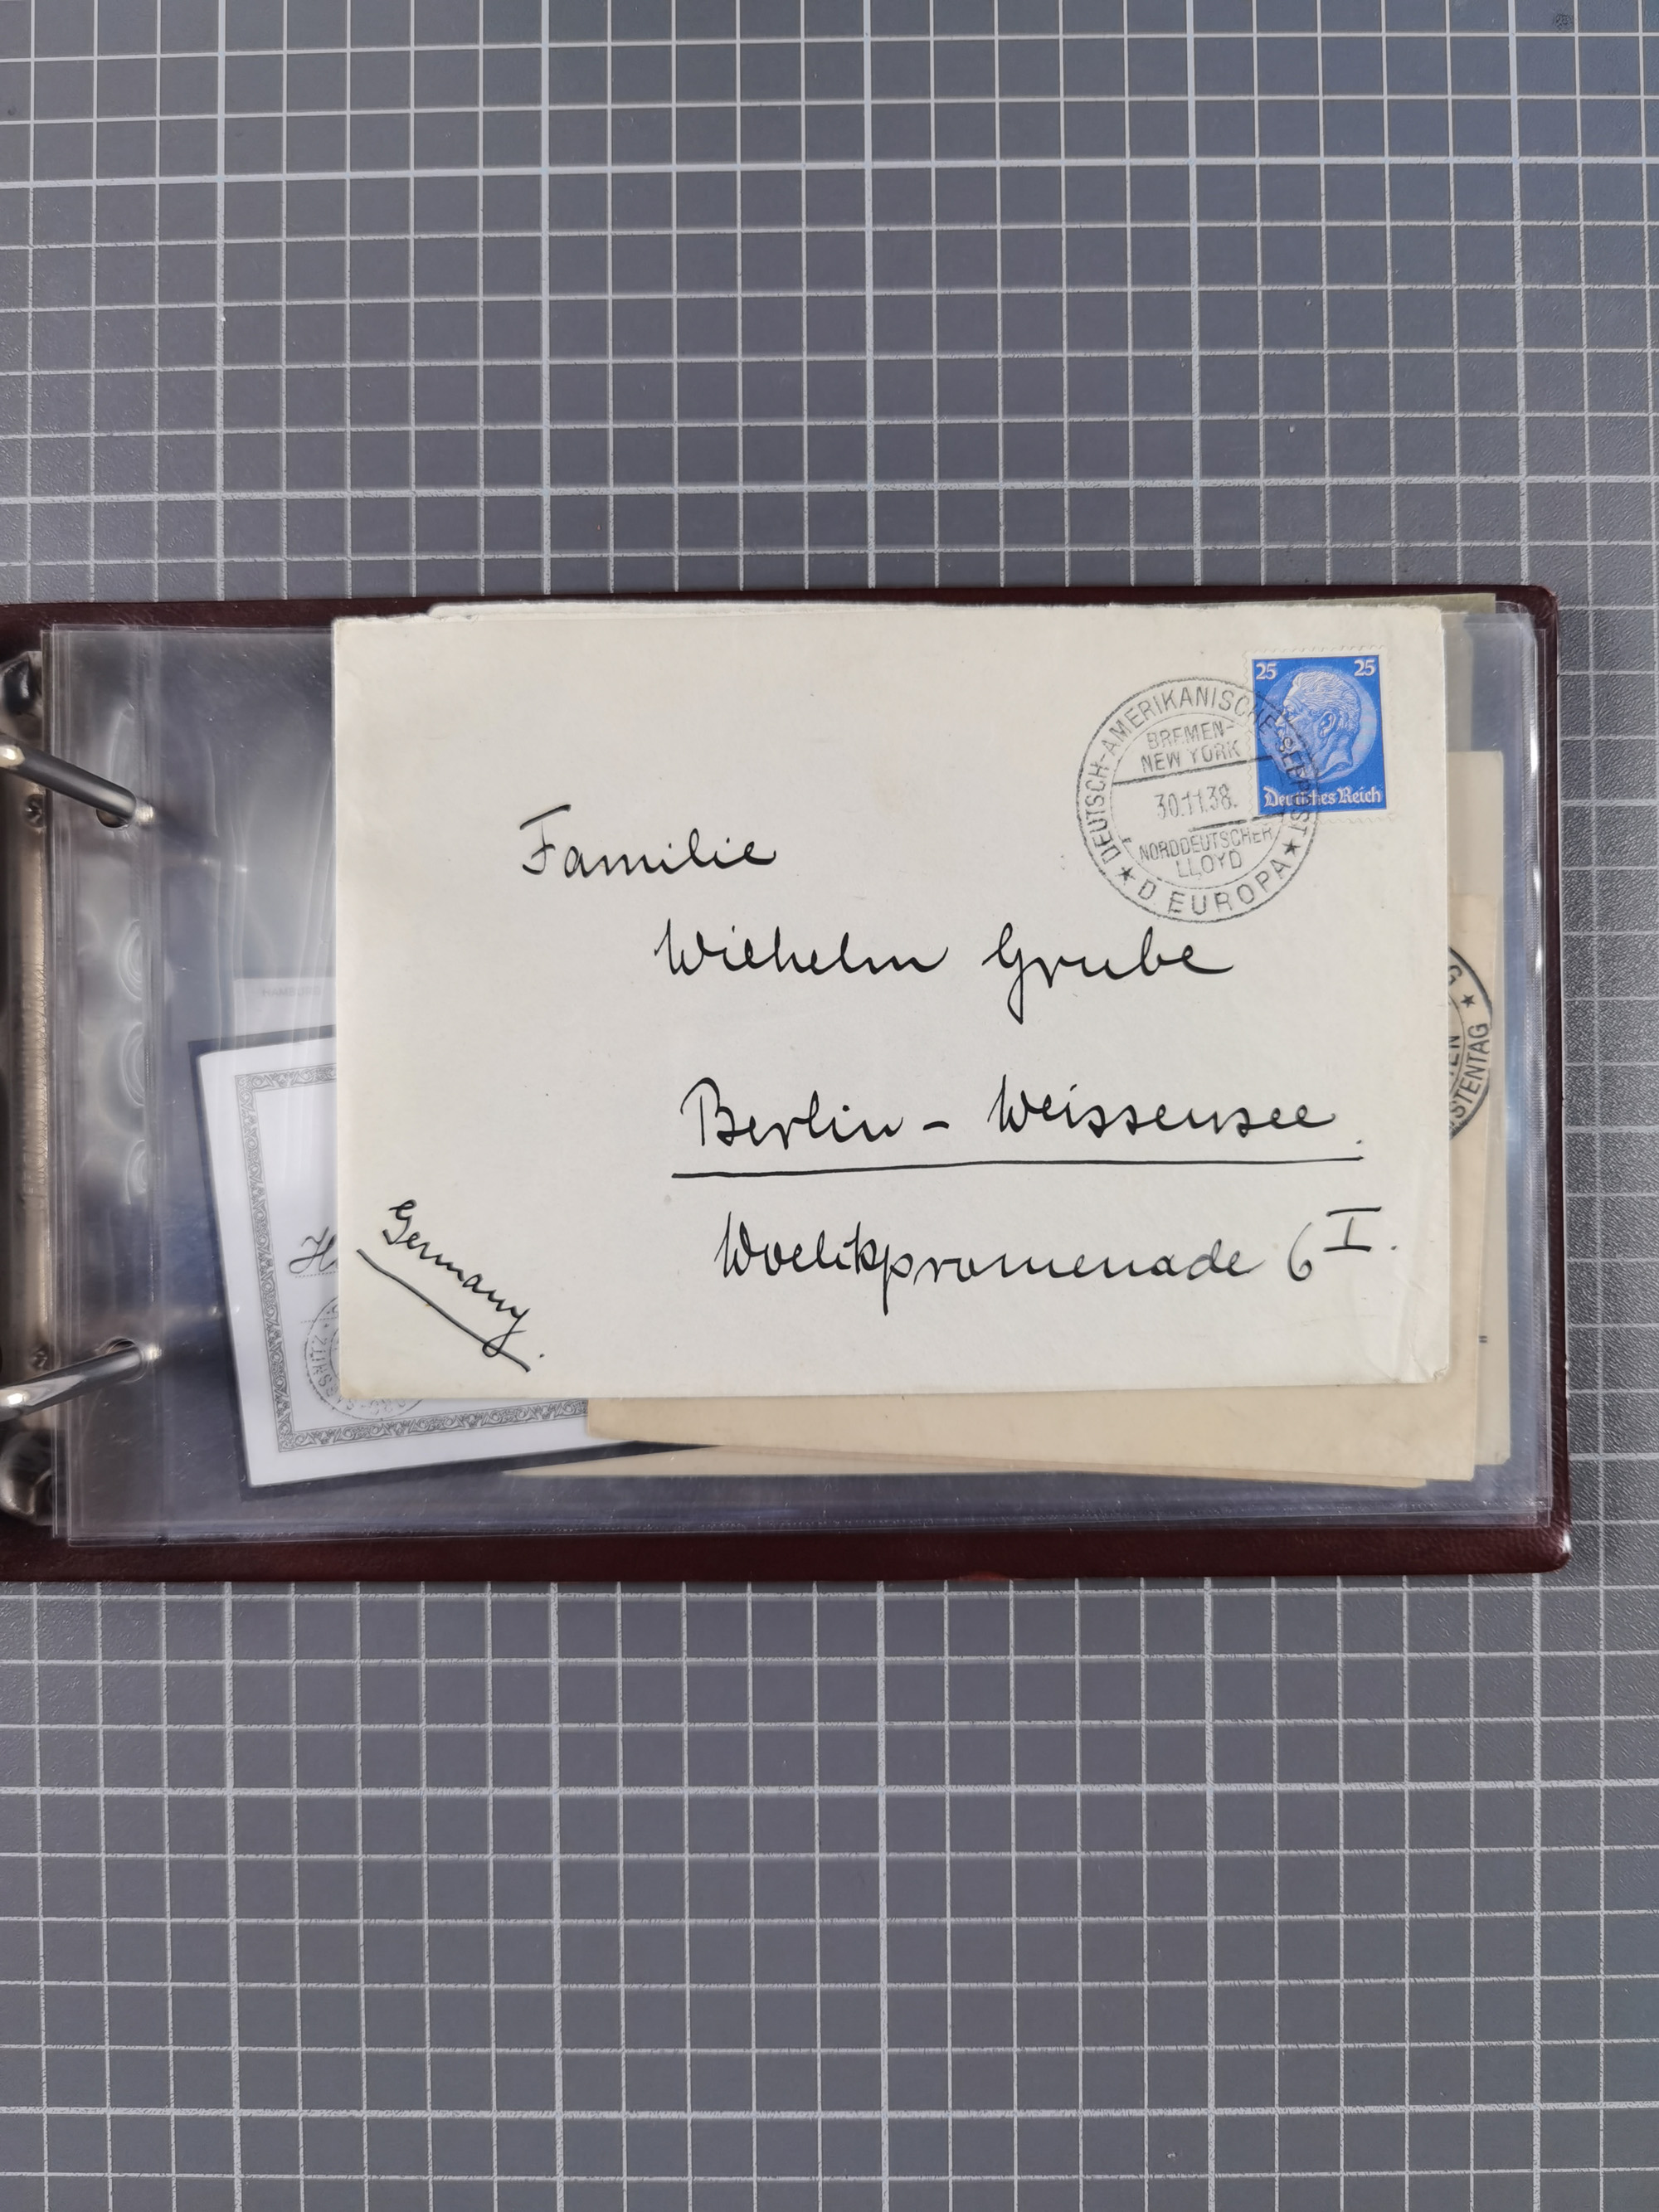 25 25
Deutsches Reich
DEUTSCH-AMERIKANISCHE SEEPOST
BREMEN-
NEW YORK
30.11.38.
NORDDEUTSCHER
LLOYD
★ D. EUROPA ★
Familie
Wilhelm Grube
Berlin - Weissensee.
Woelckpromenade 6 I.
Germany.
STENTAG